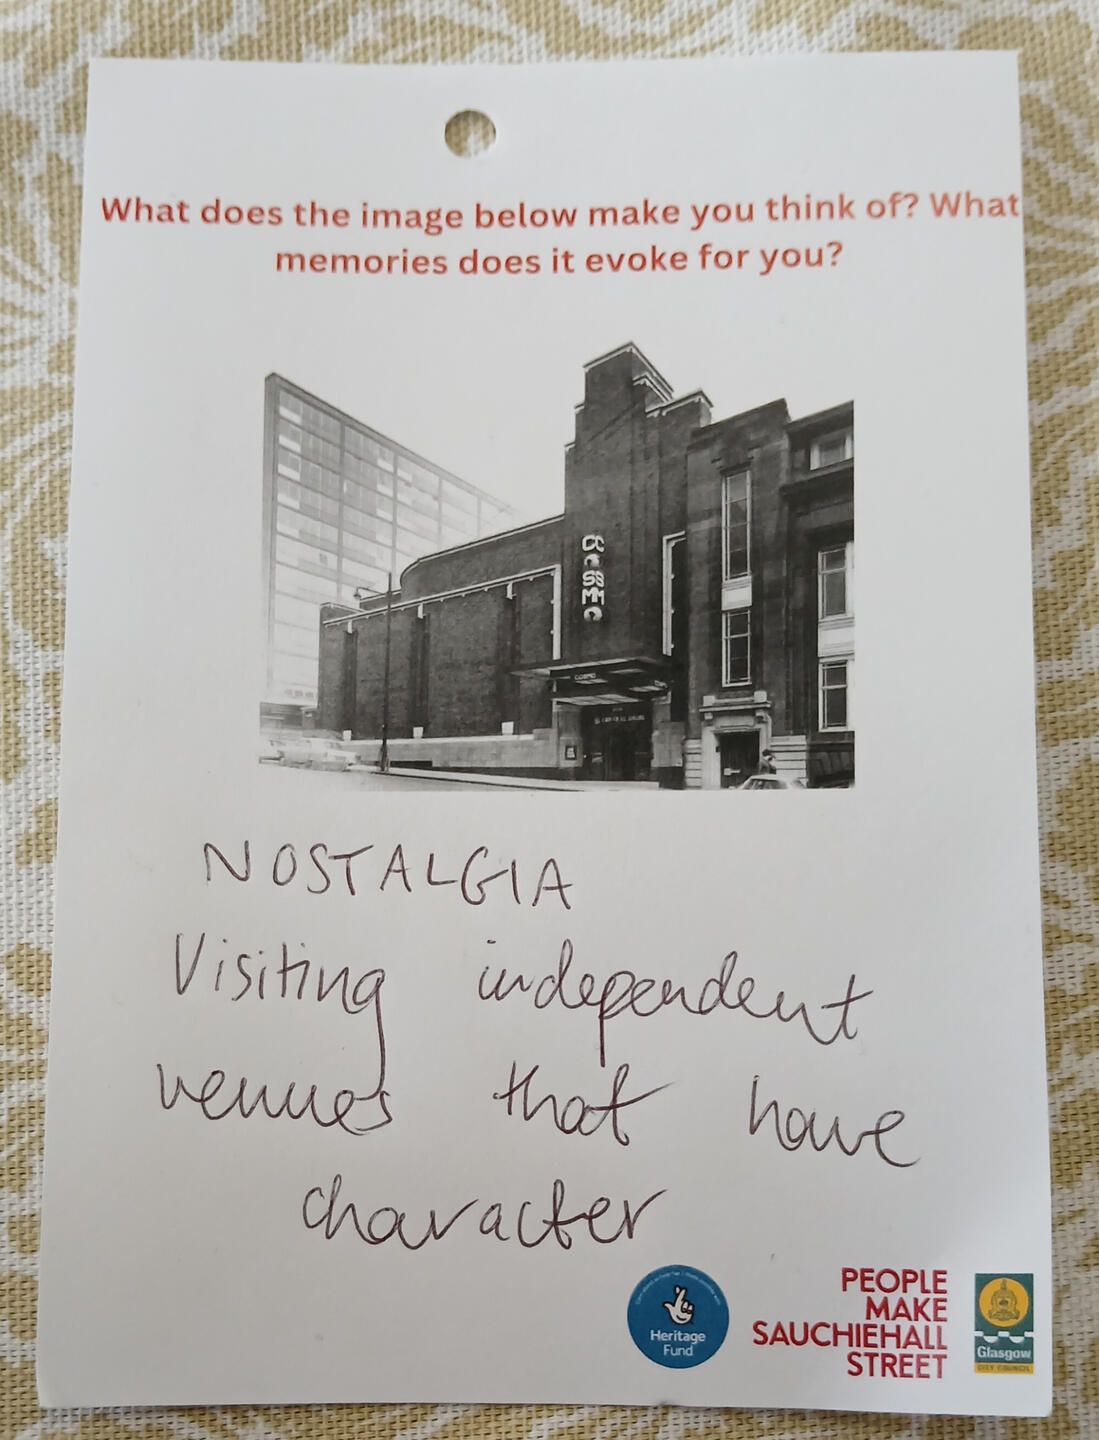 What does the image below make you think of? What
memories does it evoke for you?
COSMO
COSMO
NOSTALGIA
Visiting independent
venues that have
character
Heritage
Fund
PEOPLE
MAKE
SAUCHIEHALL
STREET
Glasgow
CITY COUNCIL